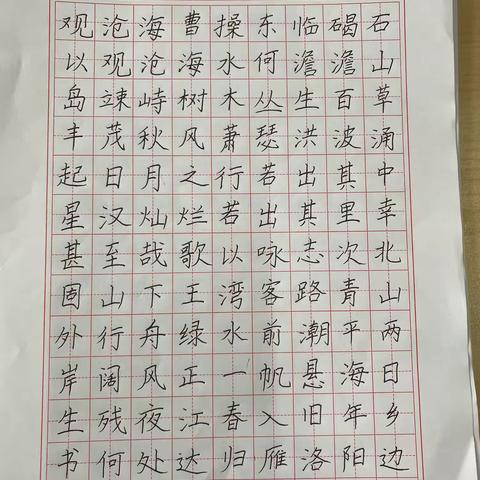 观沧海曹操东临碣石
以观沧海水何澹澹山
岛竦峙树木丛生百草
丰茂秋风萧瑟洪波涌
起日月之行若出其中
星汉灿烂若出其里幸
甚至哉歌以咏志次北
固山下王湾客路青山
外行舟绿水前潮平两
岸阔风正一帆悬海日
生残夜江春入旧年乡
书何处达归雁洛阳边